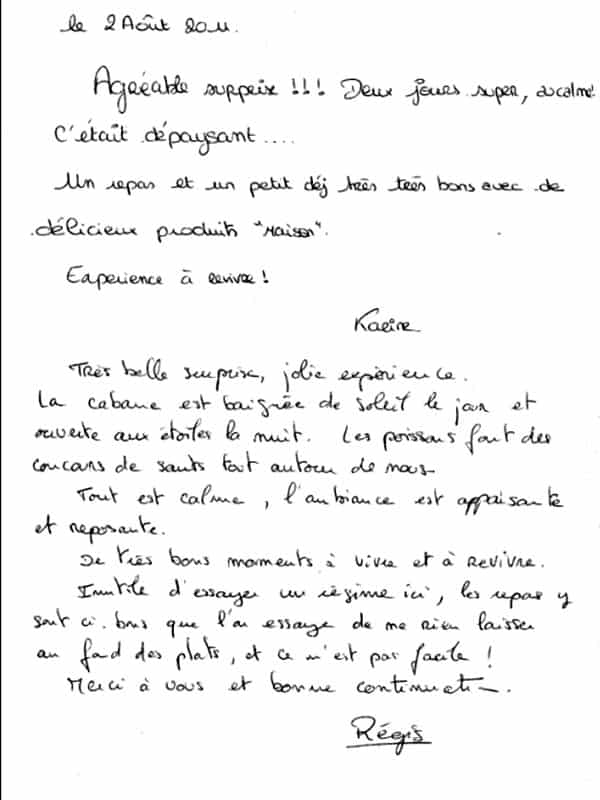 le 2 Août 2011.
Agréable surprise !!! Deux jours super, au calme!
C'était dépaysant ....
Un repas et un petit déj très très bons avec de
délicieux produits "Maison".
Experience à revivre !
Karine
Très belle surprise, jolie expèrience.
La cabane est baignée de soleil le jour et
ouverte aux étoiles la nuit. Les poissons font des
concours de sauts tout autour de nous
Tout est calme, l'ambiance est appaisante
et reposante.
De très bons moments à vivre et à REVIVRE.
Inutile d'essayer un régime ici, les repas y
sont si bons que l'on essaye de ne rien laisser
au fond des plats, et ce n'est pas facile !
Merci à vous et bonne continuation.
Régis